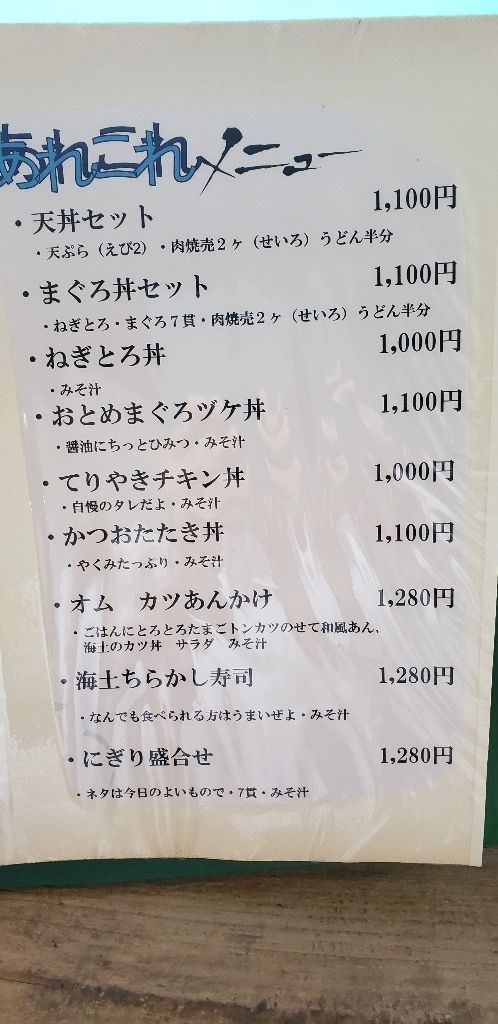 あれこれメニュー
・天丼セット 1,100円
・天ぷら（えび2）・肉焼売２ヶ（せいろ）うどん半分
・まぐろ丼セット 1,100円
・ねぎとろ・まぐろ７貫・肉焼売２ヶ（せいろ）うどん半分
・ねぎとろ丼 1,000円
・みそ汁
・おとめまぐろヅケ丼 1,100円
・醤油にちっとひみつ・みそ汁
・てりやきチキン丼 1,000円
・自慢のタレだよ・みそ汁
・かつおたたき丼 1,100円
・やくみたっぷり・みそ汁
・オム　カツあんかけ 1,280円
・ごはんにとろとろたまごトンカツのせて和風あん、
海土のカツ丼　サラダ　みそ汁
・海土ちらかし寿司 1,280円
・なんでも食べられる方はうまいぜよ・みそ汁
・にぎり盛合せ 1,280円
・ネタは今日のよいもので・7貫・みそ汁